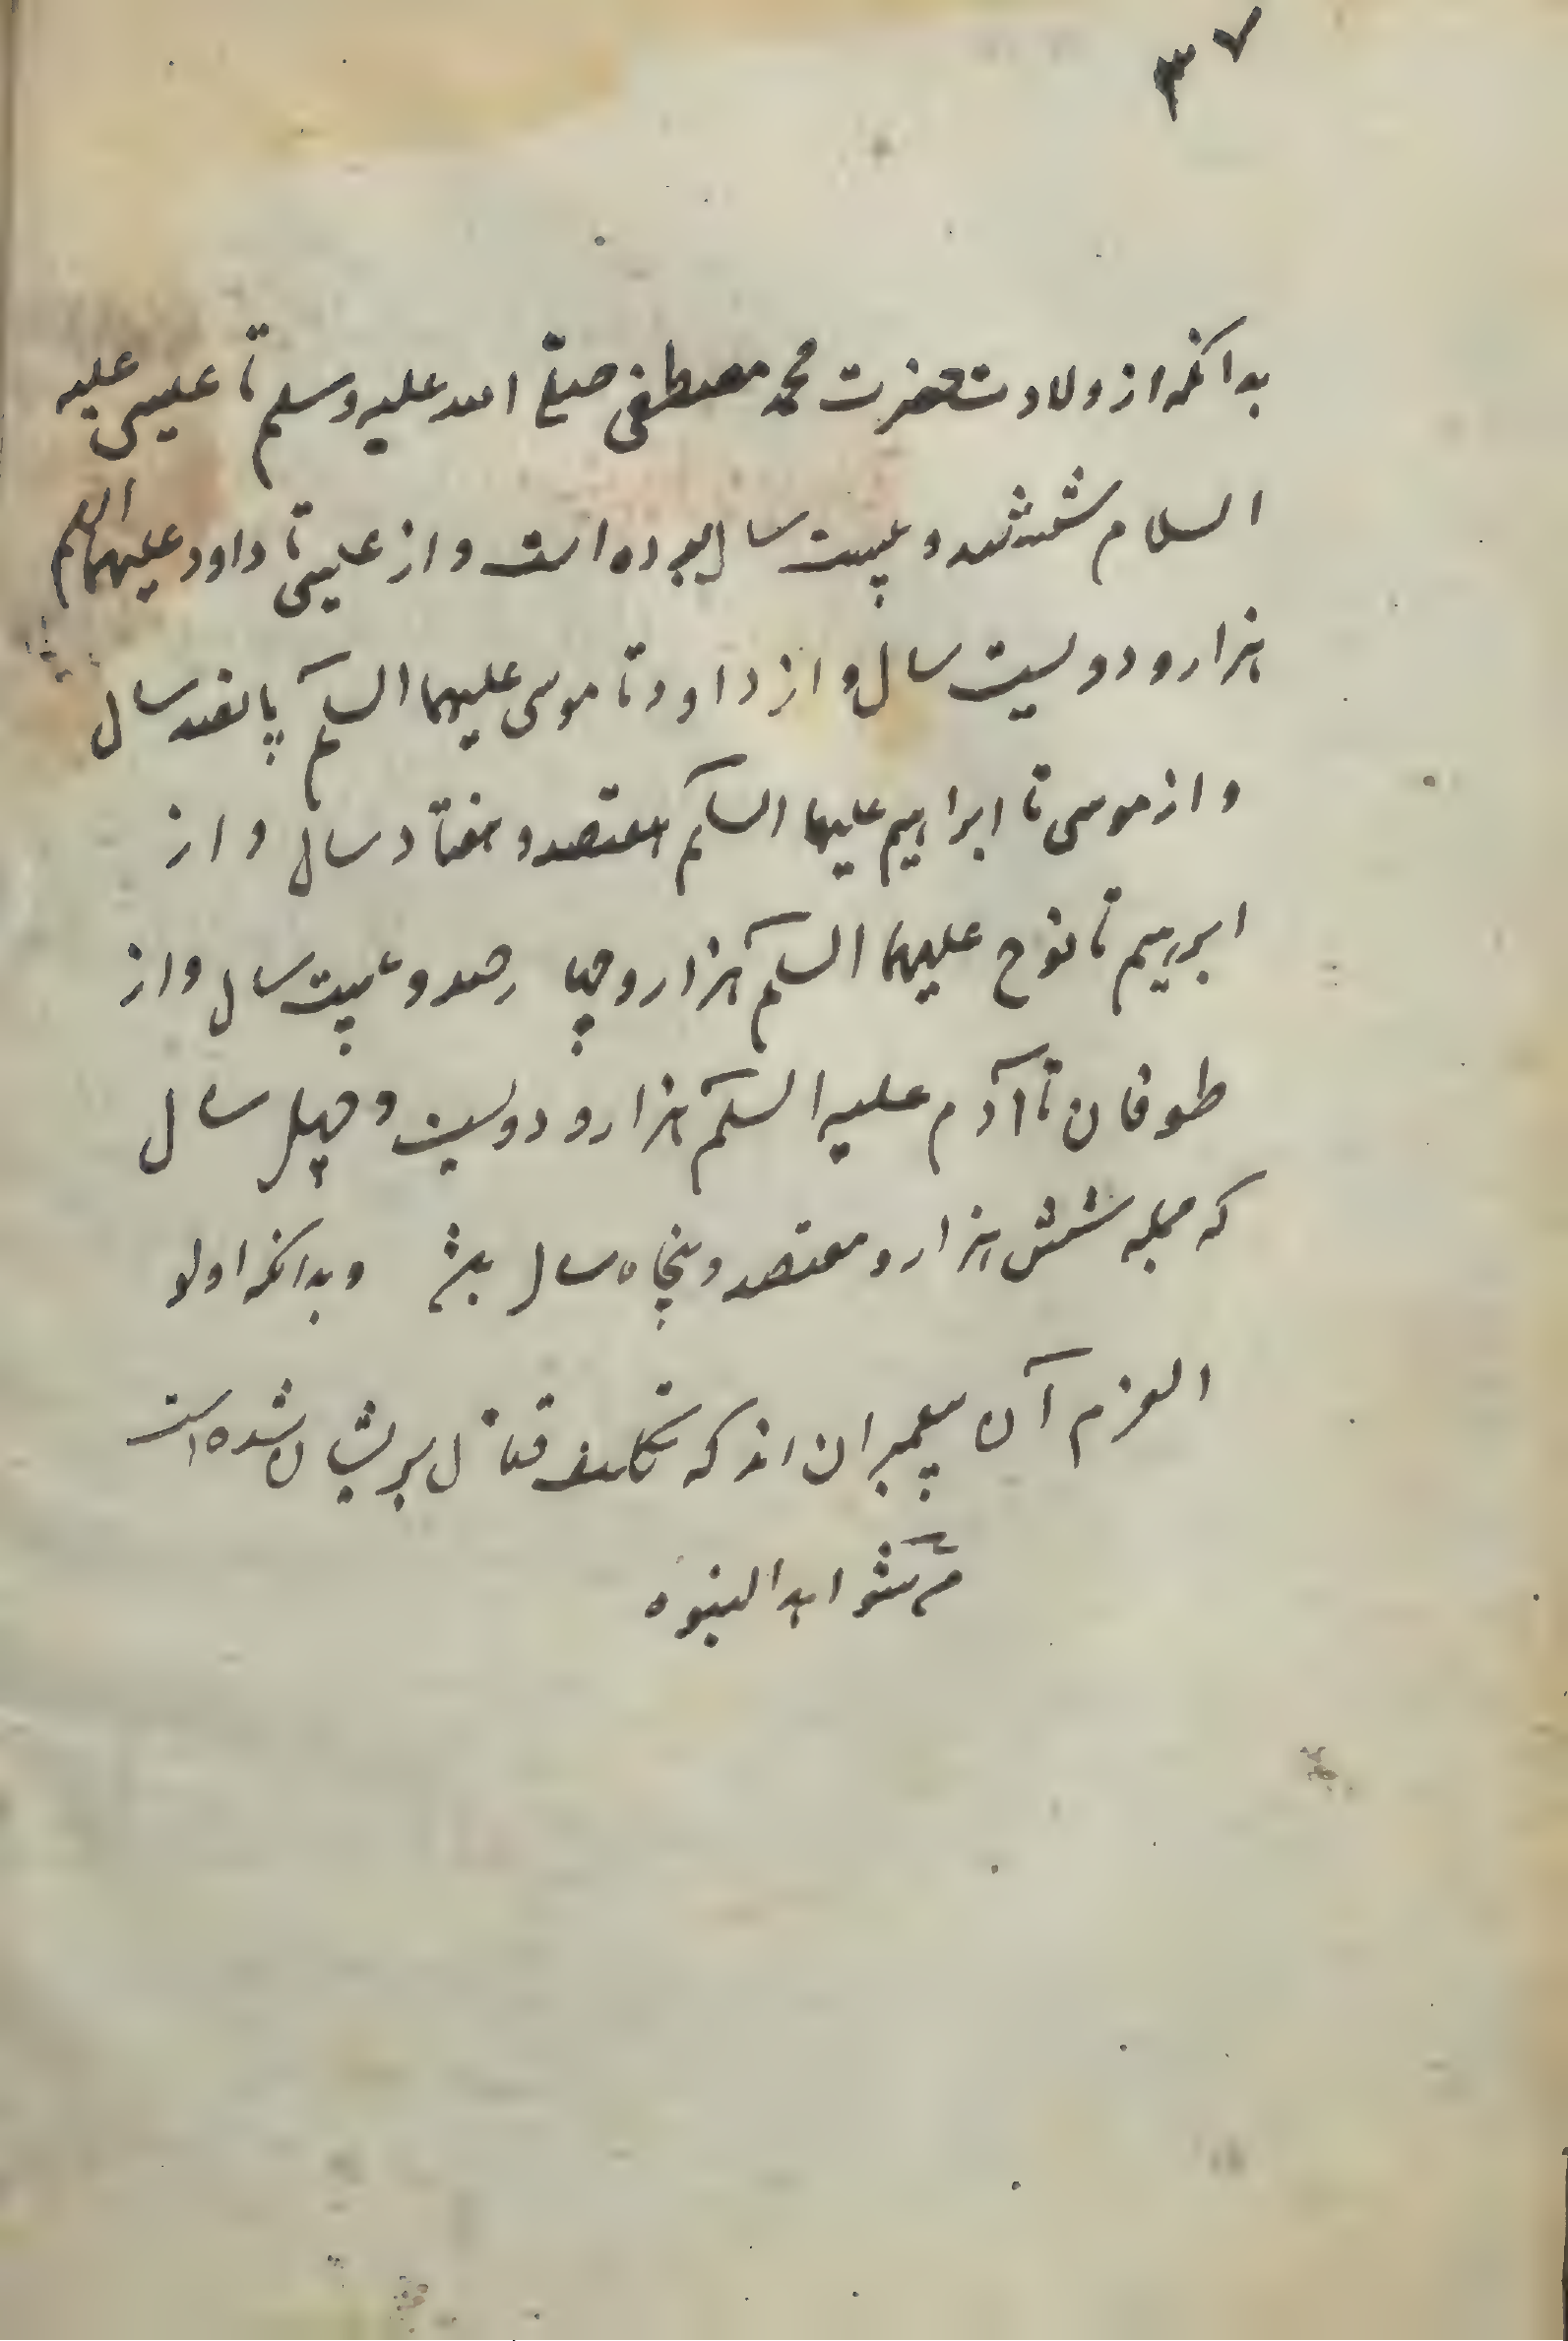 ۳۷
بدانکه از ولادت حضرت محمد مصطفی صلی الله علیه وسلم تا عیسی علیه
السلام ششصد و بیست سال بوده است و از عیسی تا داود علیهما السلم
هزار و دویست سال و از داود تا موسی علیهما السلم پانصد سال
و از موسی تا ابراهیم علیهما السلم هفتصد و هفتاد سال و از
ابرهیم تا نوح علیهما السلم هزار و چهارصد و بیست سال و از
طوفان تا آدم علیه السلم هزار و دویست و چهل سال
که جمله شش هزار و هفتصد و پنجاه سال باشد و بدانکه اولو
العزم آن پیغمبران اند که تکلیف قتال بریشان شده است
شواهد النبوه